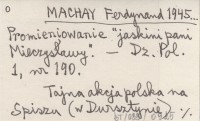 MACHAY Ferdynand 1945...
Promieniowanie "jaskini pani
Mieczysławy". — Dz. Pol.
1, nr 190.
Tajna akcja polska na
Spiszu (w Dursztynie) ·/.